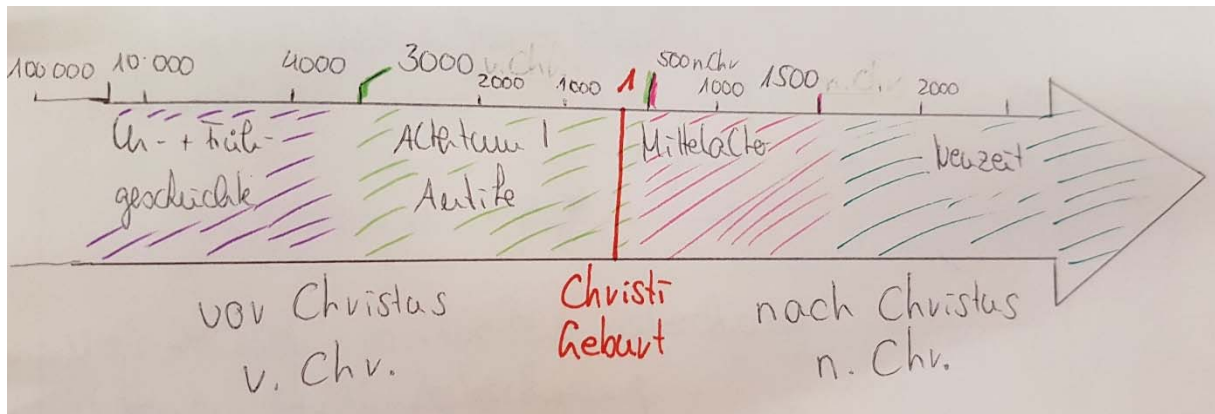 100 000 10 000 4000 3000 v. Chr. 2000 1000 1 500 n Chr 1000 1500 n. Chr. 2000
Ur- + Früh-
geschichte
Altertum /
Antike
Mittelalter
Neuzeit
vor Christus
v. Chr.
Christi
Geburt
nach Christus
n. Chr.